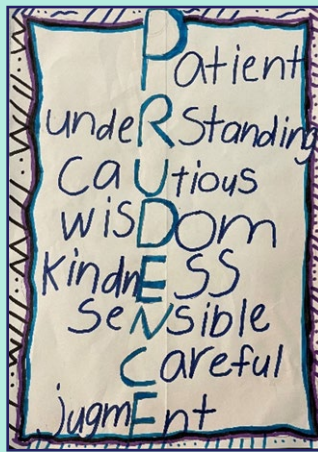 Patient
undeRStanding
CaUtious
wisDom
KindnESS
SeNsible
Careful
jugmEnt